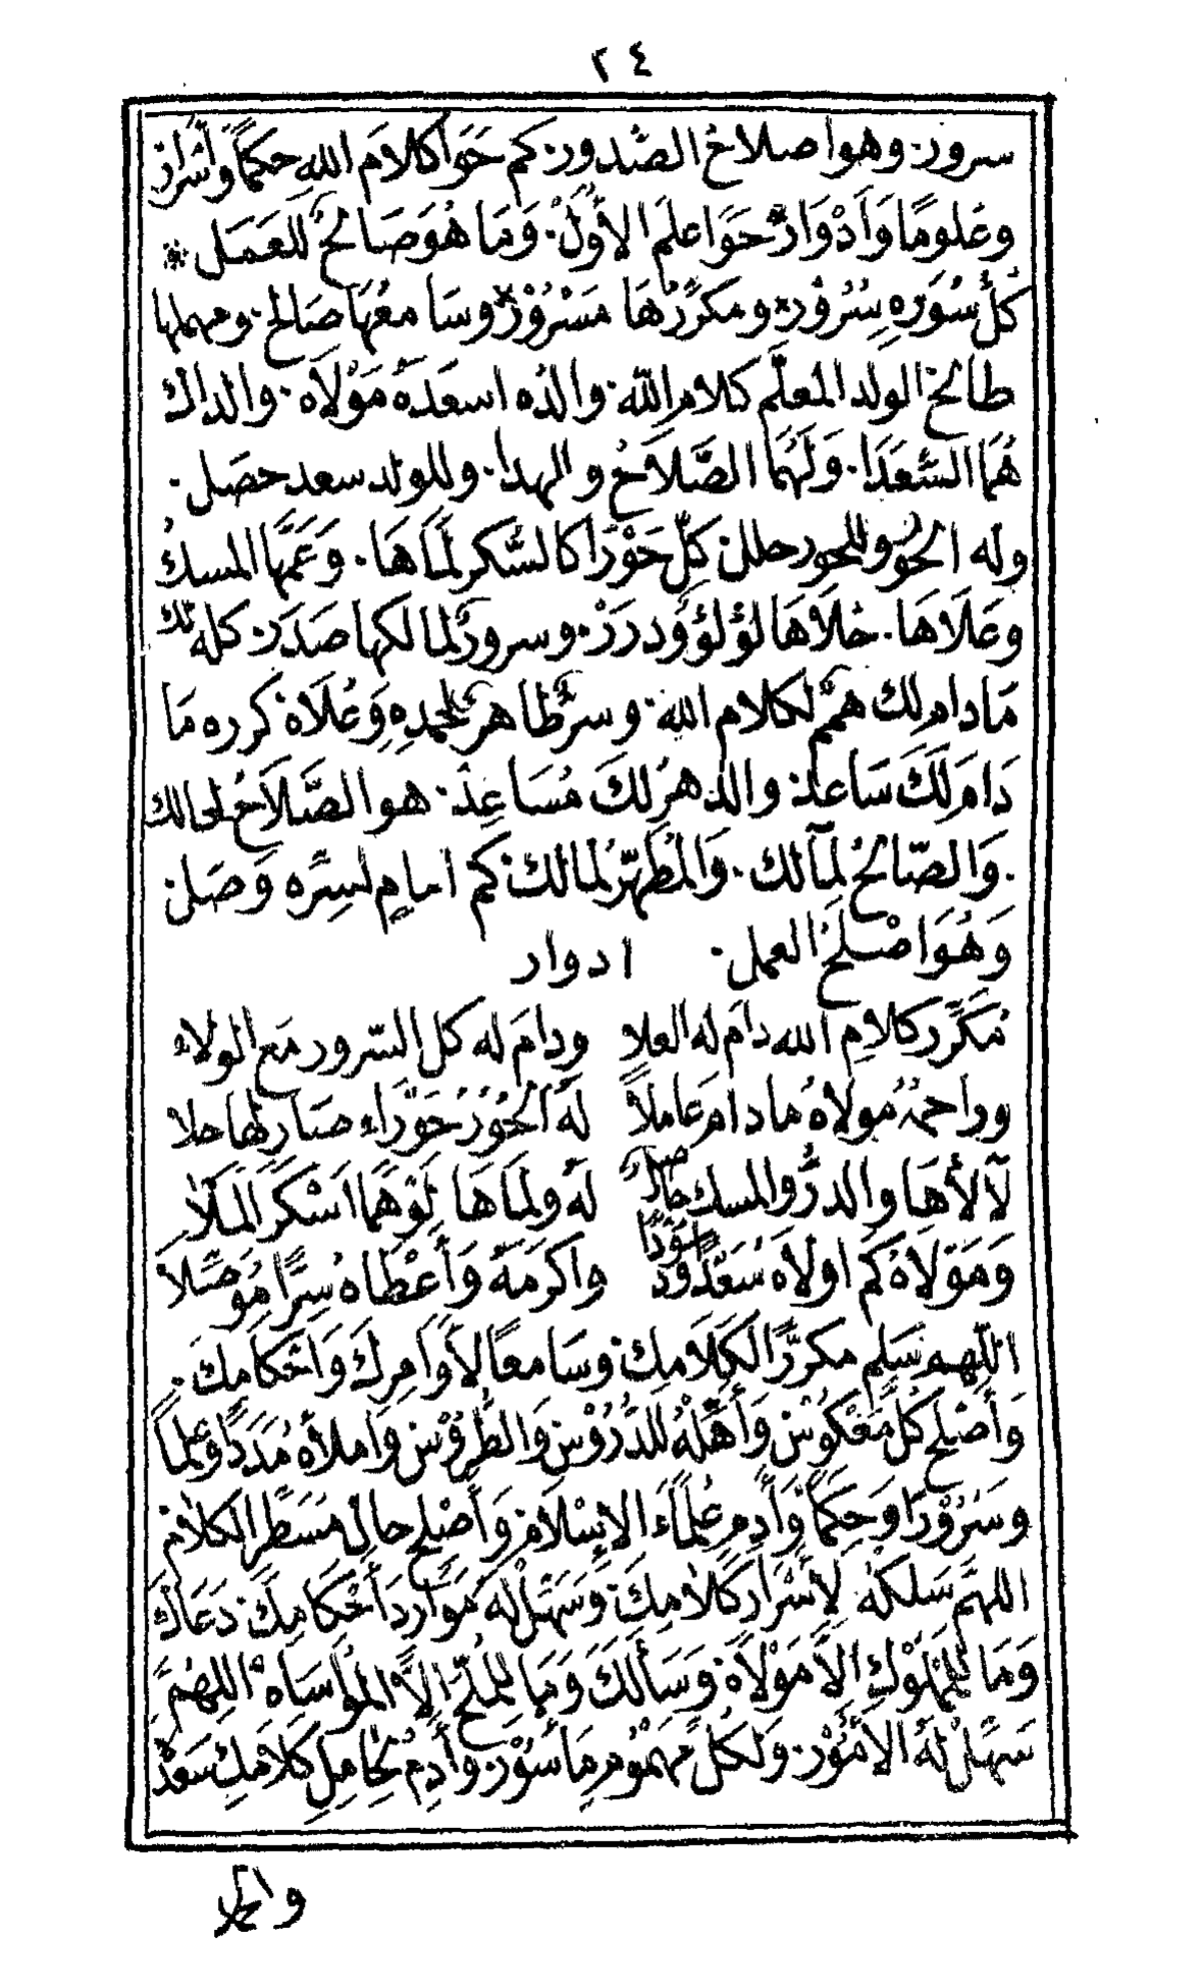 ٢٤
سرور. وهو اصلاح الصدور. كم حَوَا كلامَ اللهِ حِكمًا وأسْرَار
وعلومًا وَأدْوَار حَوَا علمَ الأوَلْ. وَمَا هُوَ صَالحٌ للعَمَل *
كلُّ سُوَرِهِ سُرُوْر. ومكرِّرُهَا مَسْرُوْرٌ وسَامعُهَا صَالح. ومهملها
طالح الولد المعلّم كلام الله. والدُه اسعَدَهُ مَوْلَاه. والداك
هُمَا السُّعَدَا. وَلَهُمَا الصَّلَاحُ والهدا. وللولد سعد حصَل.
وله الحُوْرُ وللحور حلل. كلّ حَوْرَا كالسُّكر لَمَاهَا. وَعَمَّهَا المسكُ
وعَلَاهَا. حُلَاهَا لؤلؤٌ ودرَرْ. وسرورٌ لمالكها صَدَر. كله لك
مَادام لك همٌّ لكلام الله. وسرٌّ طاهرٌ لحمدِهِ وَعُلَاه كرره مَا
دَامَ لَكَ سَاعد. والدهرُ لكَ مُسَاعِد. هو الصَّلَاحُ لحالك
. وَالصّالحُ لِمَآلك. وَالمُطَهِّرُ لمالك. كم امامٍ لسِرِّهِ وَصَل
وَهُوَ اصْلَحُ العمل. ادوار
مُكَرِّر كلامِ الله دَامَ له العلا ودامَ له كل السّرور مَع الولاء
وراحمُهُ مولاهُ مادام عَاملًا لهُ الحُوْرُ حَوْرَاء صَار لها حلا
لآلأهَا والدرُّ والمسك حال صار لهُ ولمَاهَا لوْهمًا اسْكَرَ المَلَا
وَمَوْلَاهُ كم اولَاهُ سُعَدًا وُدًّا سُؤددًا واكرَمَهُ وَأَعْطَاهُ سِرًّا مُوَصَّلَا
اللهم سَلِّم مكررًا لكَلَامِك. وسَامعًا لأوَامِركَ وَاحْكَامِكَ.
وَأصْلِح كلَّ مَعْكُوْس وَأهِّلْهُ للدُّرُوْس وَالطُّرُوْس وَاملأهُ مُدَدًا وعلمًا
وسُرُوْرًا وَحِكمًا وَأدِم عُلمَاءَ الإسْلَامِ وَأصْلِح حالَ مُسَطِّر الكلام
اللهمَّ سَلكهُ لأسْرَار كلامِكَ. وَسَهِّلْ لَهُ مَوَارِدَ أحْكَامِكَ. دَعَاكَ
وَمَا للمَمْلُوْكِ إلاَّ مَوْلَاهُ. وَسَألَكَ وَمَا للمُلحِّ إلَّا المُوَاسَاه اللهُمَّ
سَهِّلْ لَهُ الأُمُوْر. وَلكُلِّ مَهْمُوْمٍ مَأسُوْر. وأدِمْ لحَامِلِ كَلَامِكَ سَعْدَ